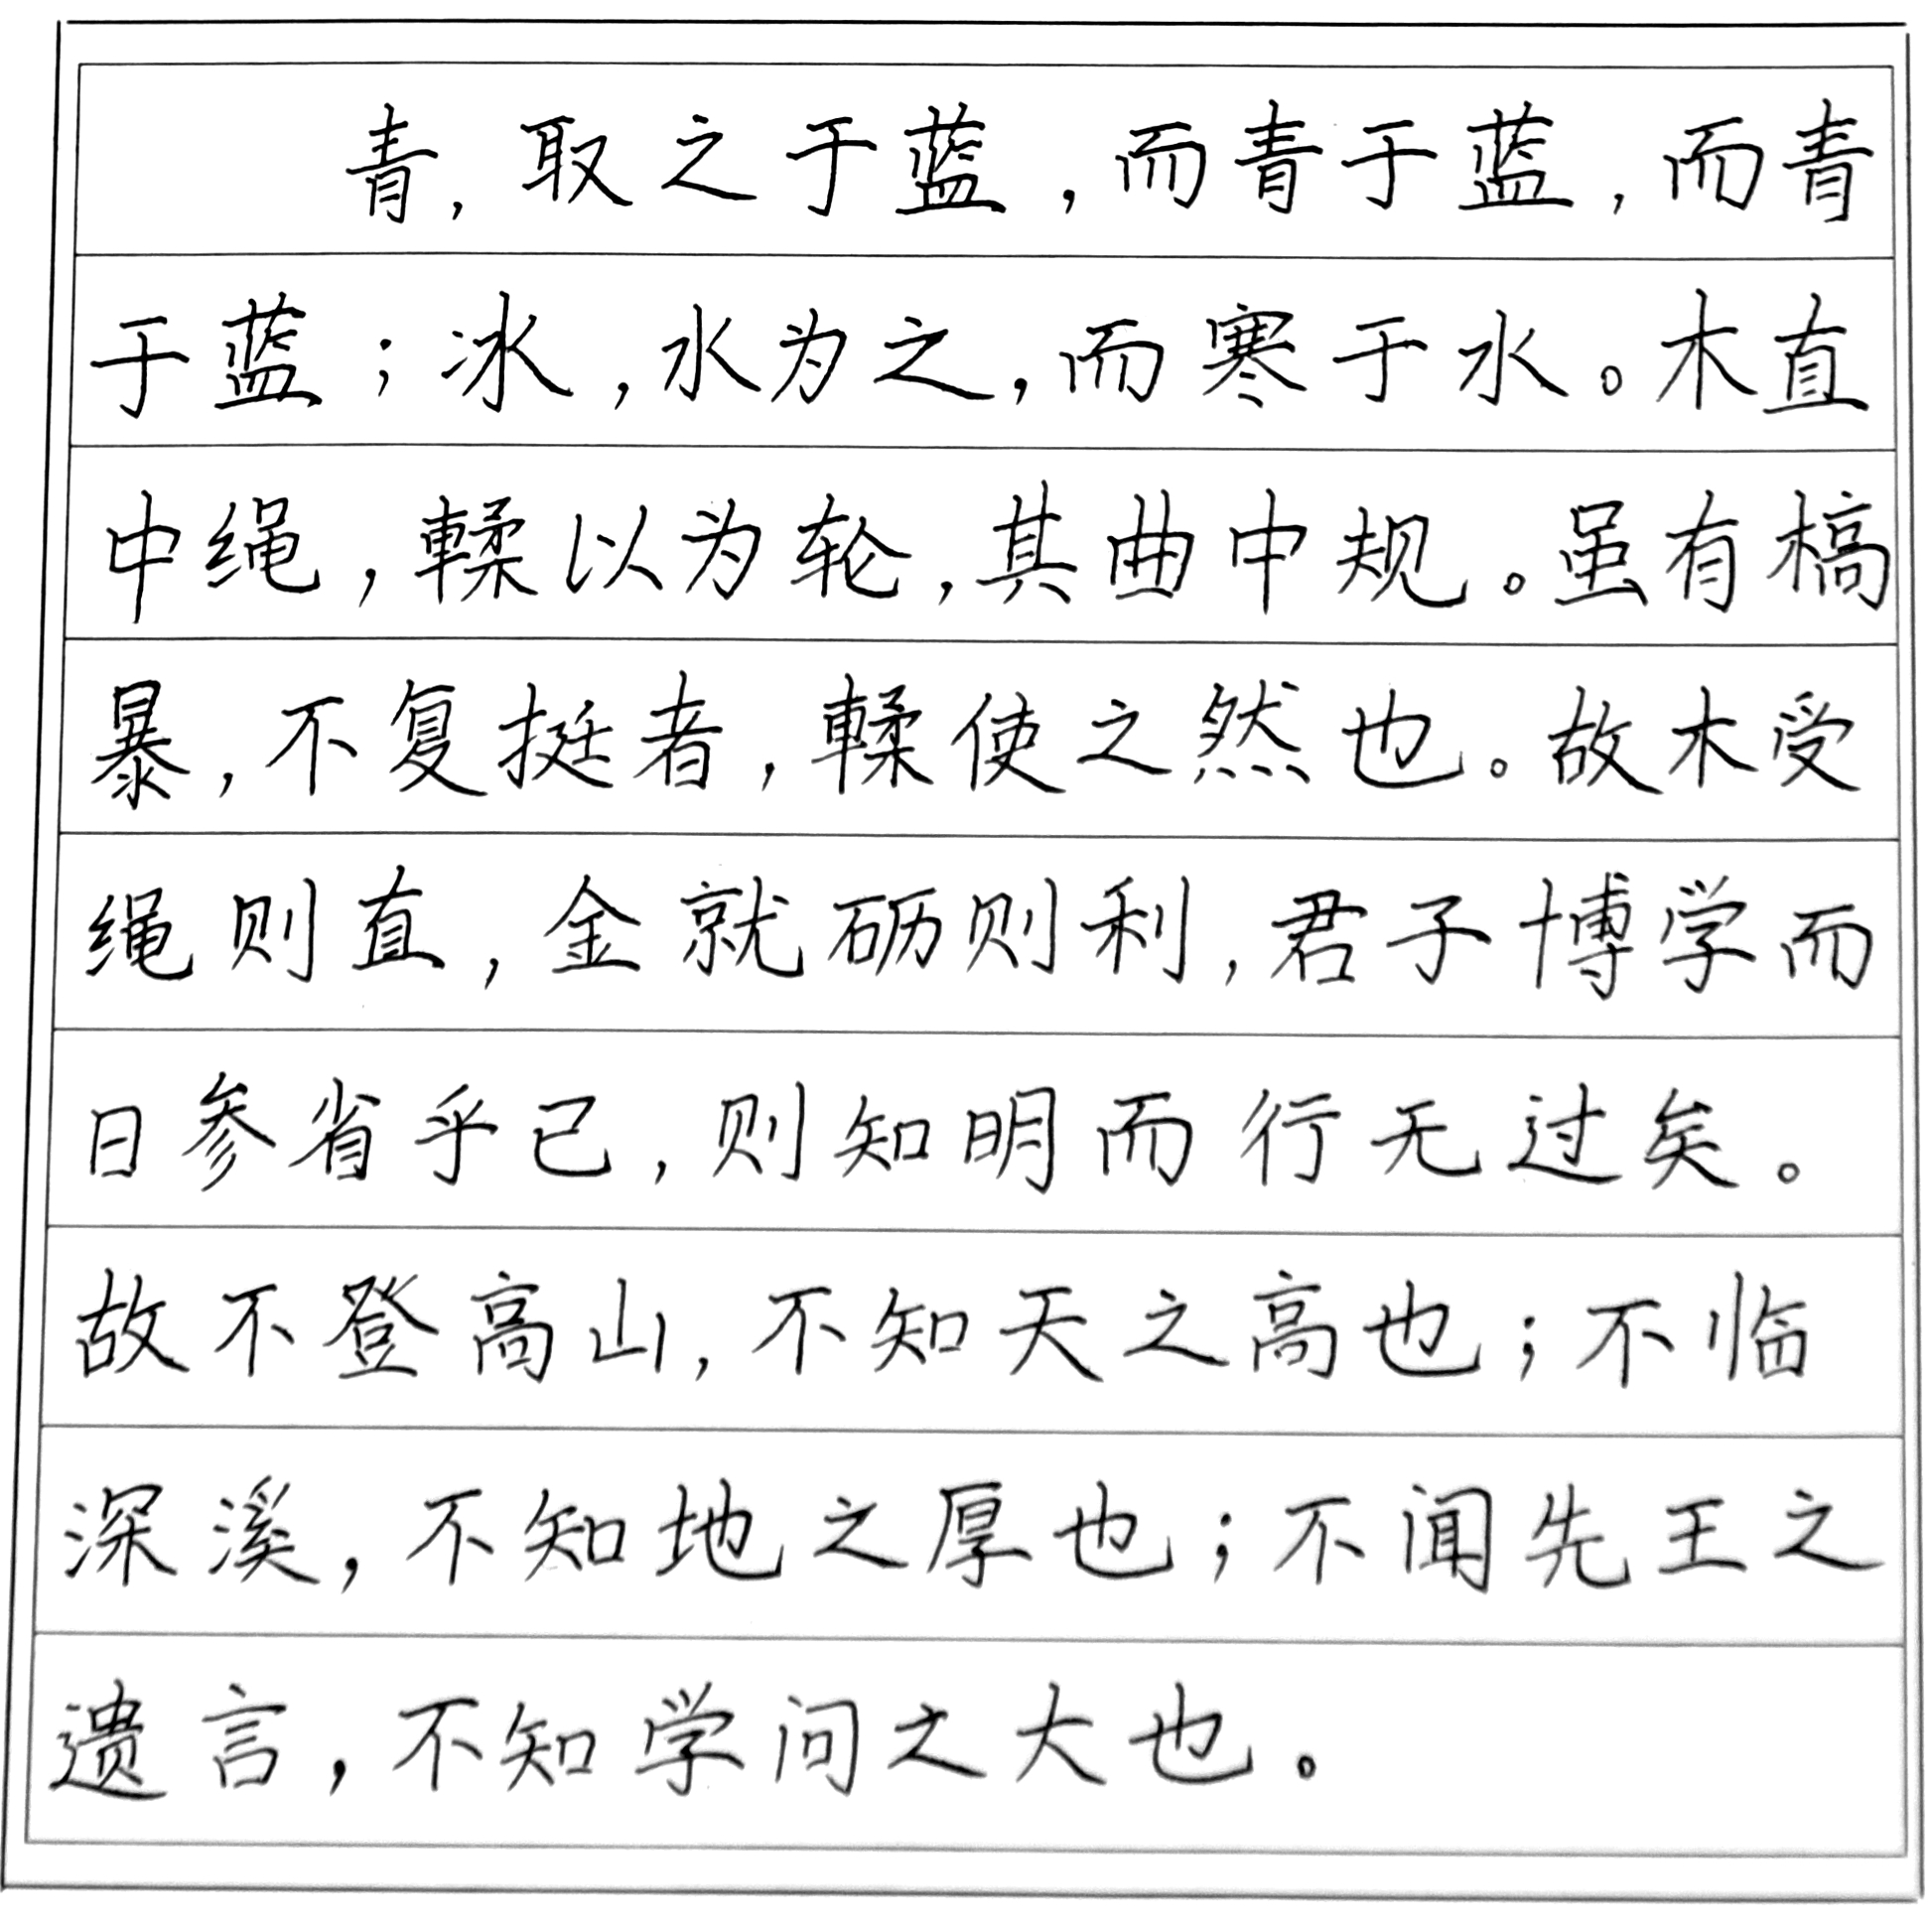 青,取之于蓝,而青于蓝,而青
于蓝;冰,水为之,而寒于水。木直
中绳,輮以为轮,其曲中规。虽有槁
暴,不复挺者,輮使之然也。故木受
绳则直,金就砺则利,君子博学而
日参省乎己,则知明而行无过矣。
故不登高山,不知天之高也;不临
深溪,不知地之厚也;不闻先王之
遗言,不知学问之大也。